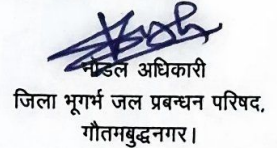 नोडल अधिकारी
जिला भूगर्भ जल प्रबन्धन परिषद,
गौतमबुद्धनगर।